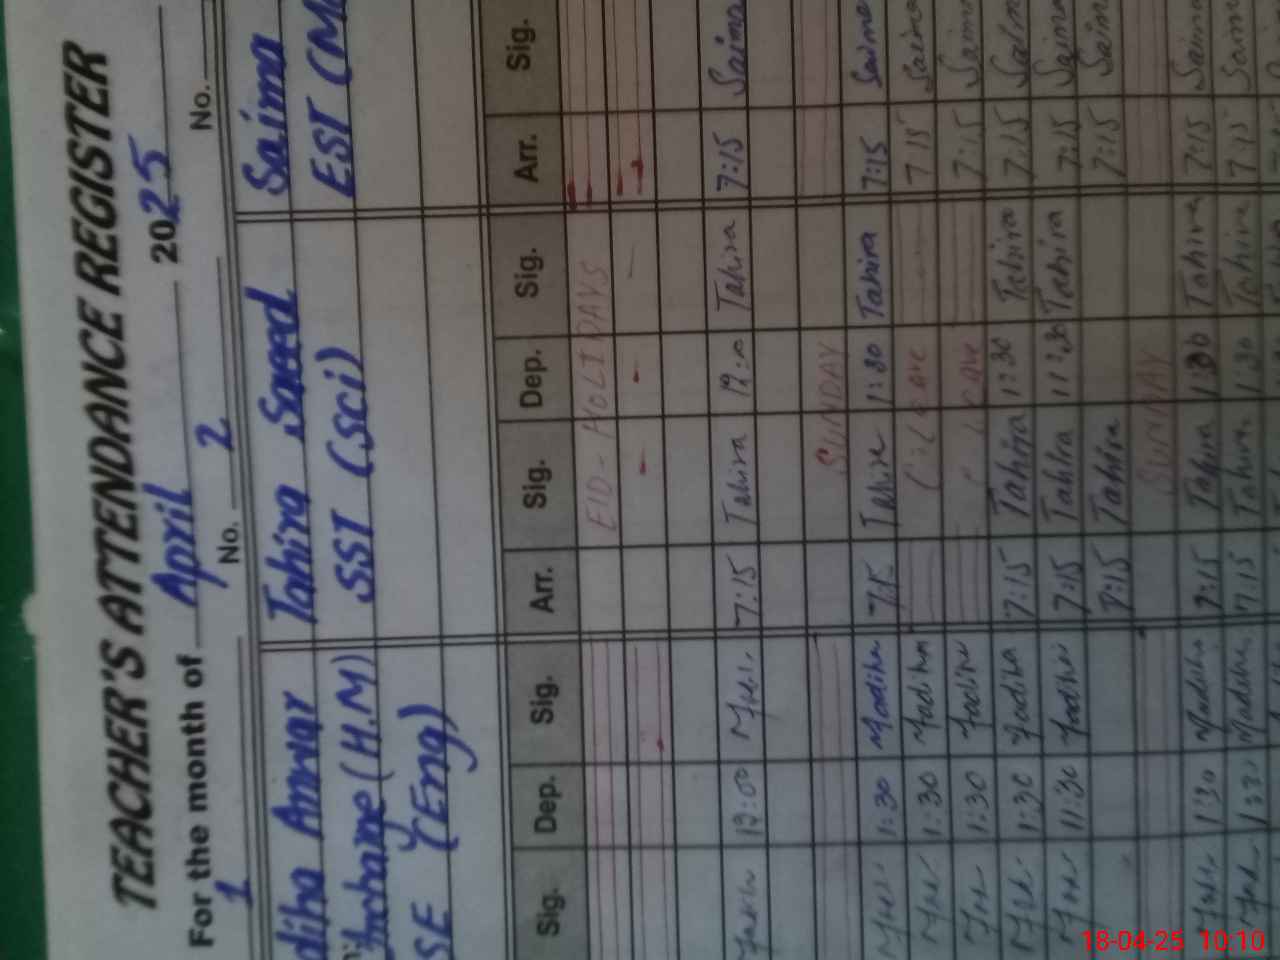 TEACHER'S ATTENDANCE REGISTER
For the month of April 2025
1 No. 2 No.
diha Anwar Tahira Saeed Saima
Incharge (H.M) SST (Sci) EST (M
SE (Eng)
Sig. Dep. Sig. Arr. Sig. Dep. Sig. Arr. Sig.
EID - HOLIDAYS
12:00 7:15 Tahira 12:00 Tahira 7:15 Saima
SUNDAY
1:30 Madiha 7:15 Tahira 1:30 Tahira 7:15 Saima
1:30 Madiha C. Leave 7:15 Saima
1:30 Madiha 7:15 Saima
1:30 Madiha 7:15 Tahira 1:30 Tahira 7:15 Saima
11:30 Madiha 7:15 Tahira 11:30 Tahira 7:15 Saima
7:15 Tahira 7:15 Saim
SUNDAY
1:30 Madiha 7:15 Tahira 1:30 Tahira 7:15 Saima
1:30 Madiha 7:15 Tahira 1:30 Tahira 7:15 Saim
18-04-25 10:10